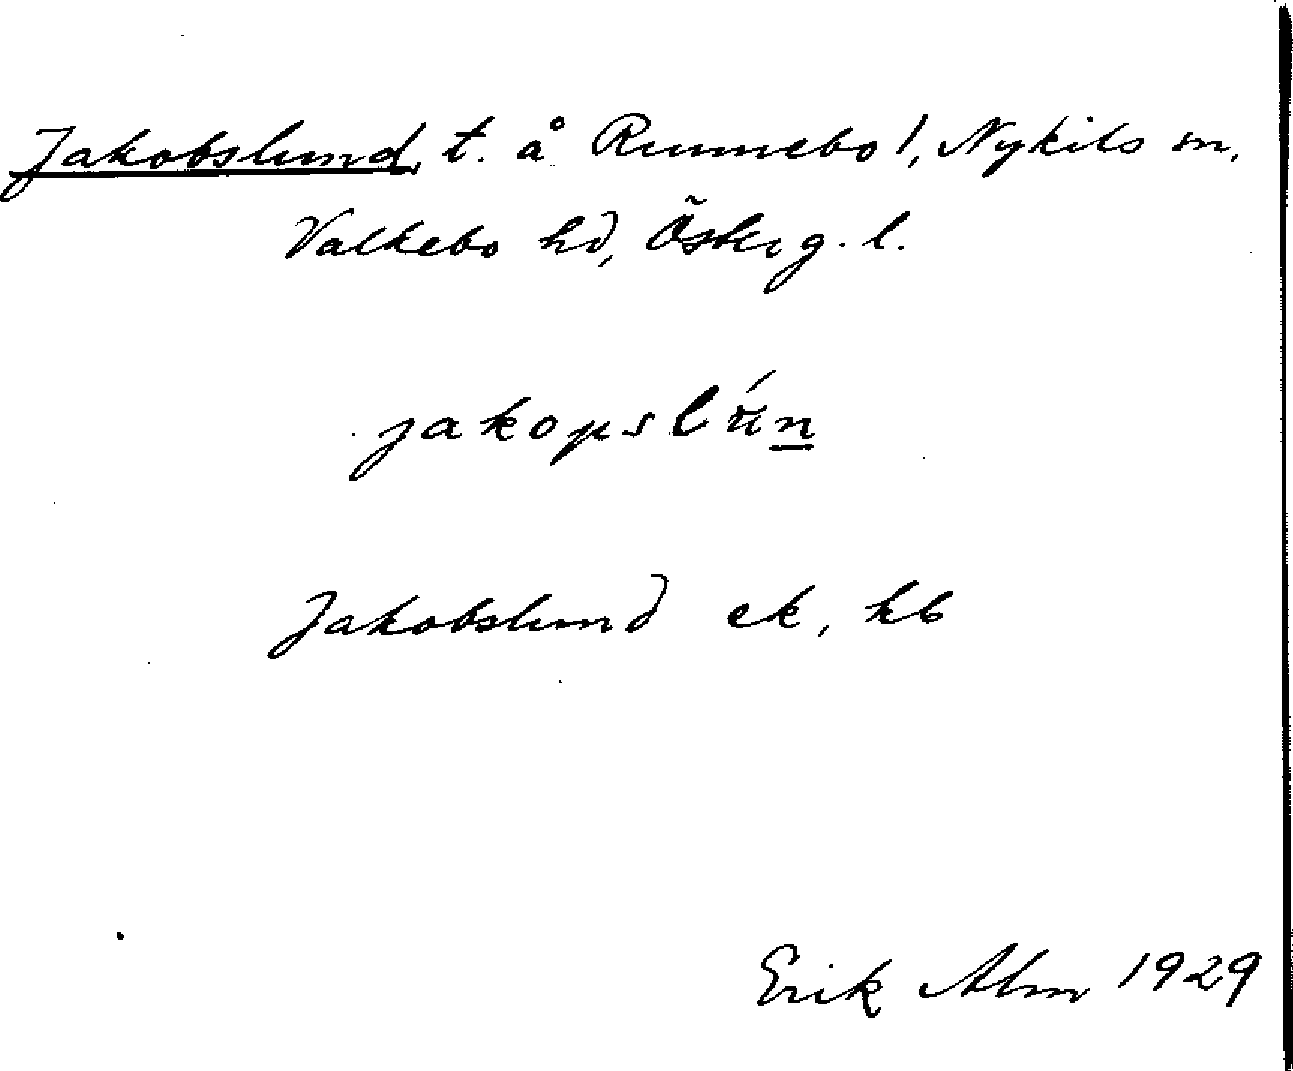 Jakobslund, t. å Runnebo 1, Nykils sn,
Valkebo hd, Österg. l.
jakopslún
Jakobslund ek, kb
Erik Alm 1929